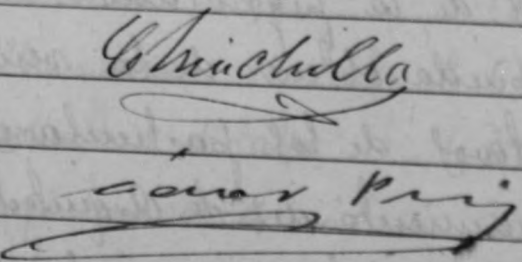 Chinchilla
César Puig